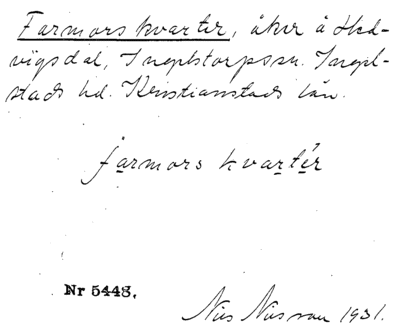 Farmors kvarter, åker å Hed-
vigsdal, Ingelstorpssn. Ingel-
stads hd. Kristianstads län.
farmors kvartér
Nr 5443.
Nils Nilsson 1931.